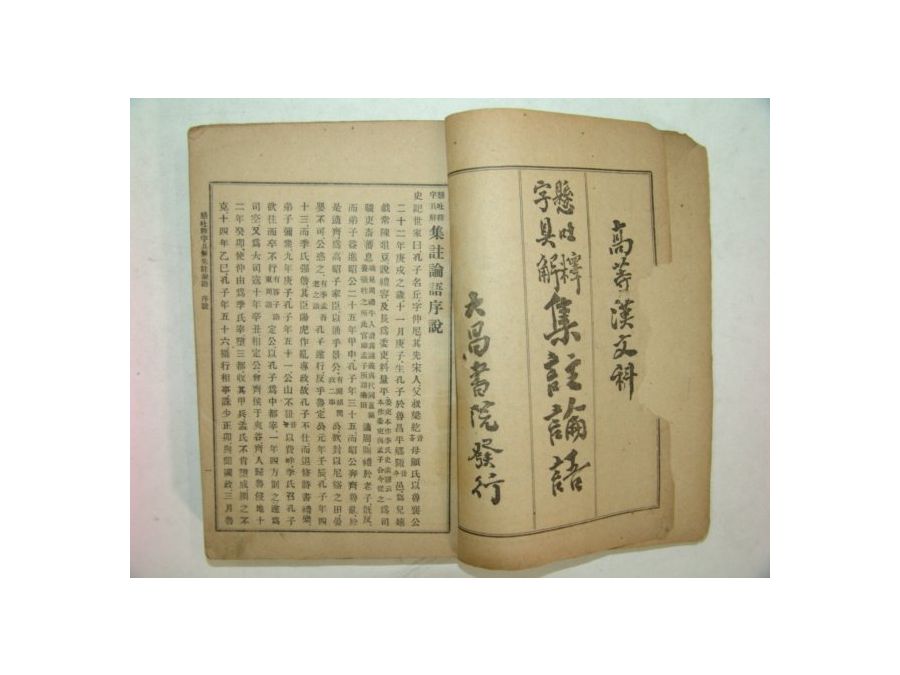 高等漢文科
懸吐釋
字具解
集註論語
大昌書院發行
懸吐釋
字具解
集註論語序說
史記世家曰孔子名丘字仲尼其先宋人父叔梁紇母顏氏以魯襄公
二十二年庚戌之歲十一月庚子生孔子於魯昌平鄉陬邑爲兒嬉
戲常陳俎豆設禮容及長爲委吏料量平
而弟子益進昭公二十五年甲申孔子年三十五而昭公奔齊魯亂於
是適齊爲高昭子家臣以通乎景公公欲封以尼谿之田晏
嬰不可公惑之孔子遂行反乎魯定公元年壬辰孔子年四
十三而季氏强僭其臣陽虎作亂專政故孔子不仕而退修詩書禮樂
弟子彌衆九年庚子孔子年五十一公山不狃以費畔季氏召孔子
欲往而卒不行定公以孔子爲中都宰一年四方則之遂爲
司空又爲大司寇十年辛丑相定公會齊侯于夾谷齊人歸魯侵地十
二年癸卯使仲由爲季氏宰墮三都收其甲兵孟氏不肯墮成圍之不
克十四年乙巳孔子年五十六攝行相事誅少正卯與聞國政三月魯
懸吐釋字具解集註論語 序說
一